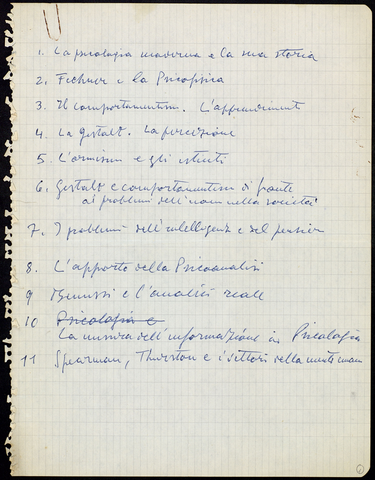 1. La psicologia moderna e la sua storia
2. Fechner e la Psicofisica
3. Il comportamentismo. L'apprendimento
4. La Gestalt. La percezione
5. L'ormismo e gli istinti
6. Gestalt e comportamentismo di fronte
ai problemi dell'uomo nella società
7. I problemi dell'intelligenza e del pensiero
8. L'apporto della Psicoanalisi
9 Benussi e l'analisi reale
10 Psicologia e
La misura dell'informazione in Psicologia
11 Spearman, Thurston e i fattori della mente umana